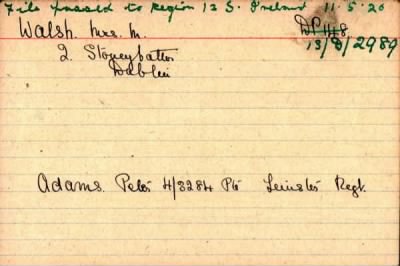 File passed to Region 12 S. Ireland 11.5.20
Walsh. Mrs. M. DP 148
2. Stoneybatter 13/D/2989
Dublin
Adams. Peter 4/3284 Pte Leinster Regt.